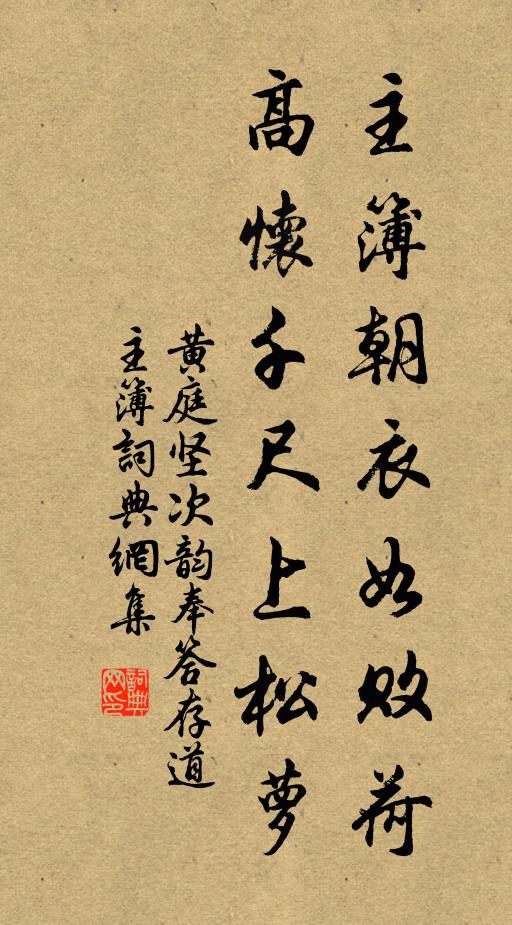 主簿朝衣如败荷
高懷千尺上松萝
黄庭坚次韵奉答存道
主簿詞典網集
詞典网印